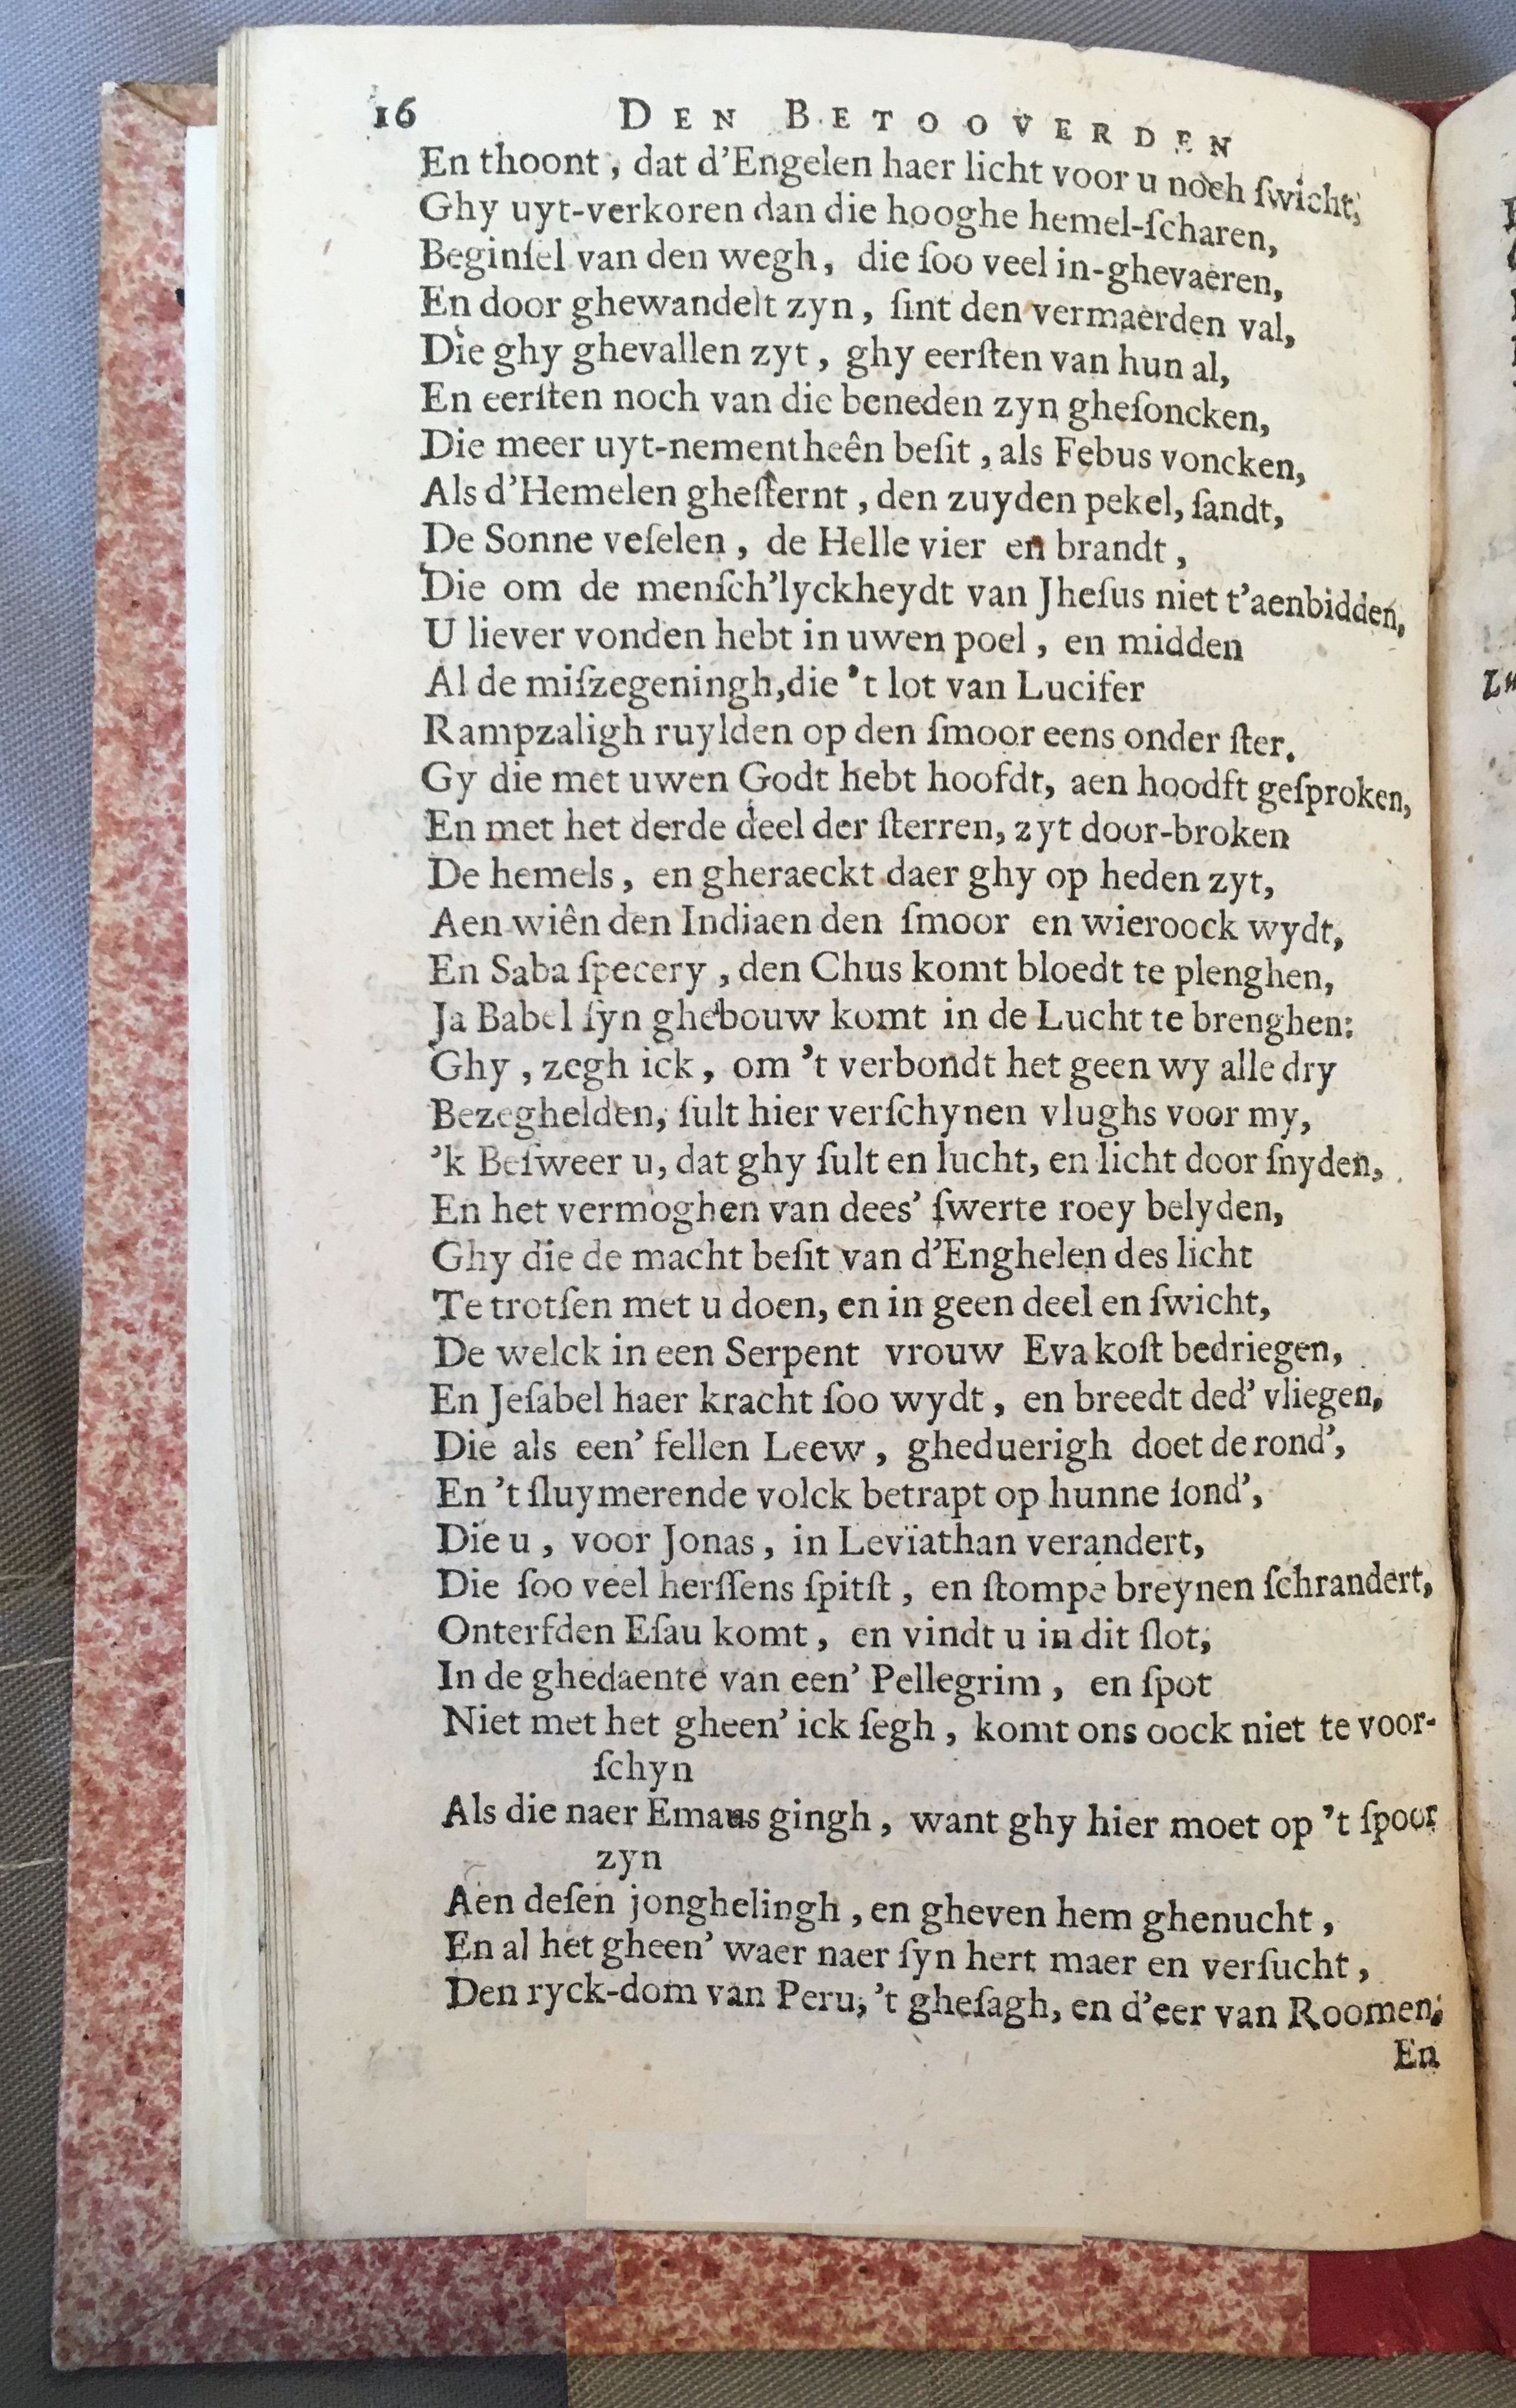 16 DEN BETOOVERDEN
En thoont, dat d'Engelen haer licht voor u noch ſwicht;
Ghy uyt-verkoren dan die hooghe hemel-ſcharen,
Beginſel van den wegh, die ſoo veel in-ghevaeren,
En door ghewandelt zyn, ſint den vermaerden val,
Die ghy ghevallen zyt, ghy eerſten van hun al,
En eerſten noch van die beneden zyn gheſoncken,
Die meer uyt-nementheên beſit, als Febus voncken,
Als d'Hemelen gheſternt, den zuyden pekel, ſandt,
De Sonne veſelen, de Helle vier en brandt,
Die om de menſch'lyckheydt van Jheſus niet t'aenbidden,
U liever vonden hebt in uwen poel, en midden
Al de miſzegeningh,die 't lot van Lucifer
Rampzaligh ruylden op den ſmoor eens onder ſter.
Gy die met uwen Godt hebt hoofdt, aen hoodft geſproken,
En met het derde deel der ſterren, zyt door-broken
De hemels, en gheraeckt daer ghy op heden zyt,
Aen wiên den Indiaen den ſmoor en wieroock wydt,
En Saba ſpecery, den Chus komt bloedt te plenghen,
Ja Babel ſyn ghebouw komt in de Lucht te brenghen:
Ghy, zegh ick, om 't verbondt het geen wy alle dry
Bezeghelden, ſult hier verſchynen vlughs voor my,
'k Beſweer u, dat ghy ſult en lucht, en licht door ſnyden,
En het vermoghen van dees' ſwerte roey belyden,
Ghy die de macht beſit van d'Enghelen des licht
Te trotſen met u doen, en in geen deel en ſwicht,
De welck in een Serpent vrouw Eva koſt bedriegen,
En Jeſabel haer kracht ſoo wydt, en breedt ded' vliegen,
Die als een' fellen Leew, gheduerigh doet de rond',
En 't ſluymerende volck betrapt op hunne ſond',
Die u, voor Jonas, in Leviathan verandert,
Die ſoo veel herſſens ſpitſt, en ſtompe breynen ſchrandert,
Onterfden Eſau komt, en vindt u in dit ſlot,
In de ghedaente van een' Pellegrim, en ſpot
Niet met het gheen' ick ſegh, komt ons oock niet te voor-
ſchyn
Als die naer Emaus gingh, want ghy hier moet op 't ſpoor
zyn
Aen deſen jonghelingh, en gheven hem ghenucht,
En al het gheen' waer naer ſyn hert maer en verſucht,
Den ryck-dom van Peru, 't gheſagh, en d'eer van Roomen;
En